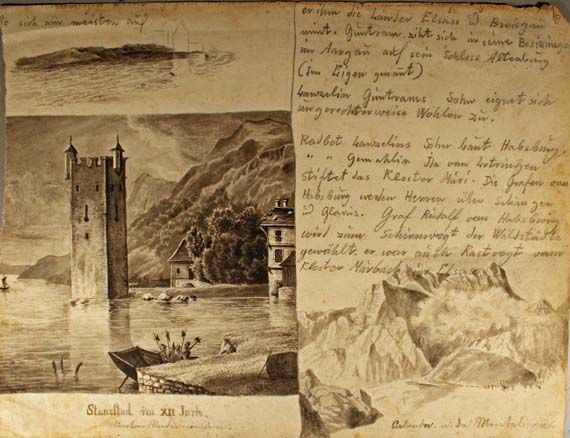 so sich am meisten auf
er ihm die Länder Elsass u. Breisgau
nimt. Guntram ziht sich in seine Besizungen
im Aargau auf sein Schloss Altenburg
(im Eigen genant)
Lanzelin Guntrams Sohn eignet sich
ungerechterweise Wohlen zu.
Radbot Lanzelins Sohn baut Habsburg.
" " Gemahlin Ita von Lotringen
stiftet das Kloster Muri. Die Grafen von
Habsburg werden Herren über
u Glarus. Graf Rudolf von Habsburg
wird zum Schirmvogt der Waldstädte
gewählt, er war auch Kastvogt vom
Kloster Murbach Elsass
Stansstad im XII Jarh.